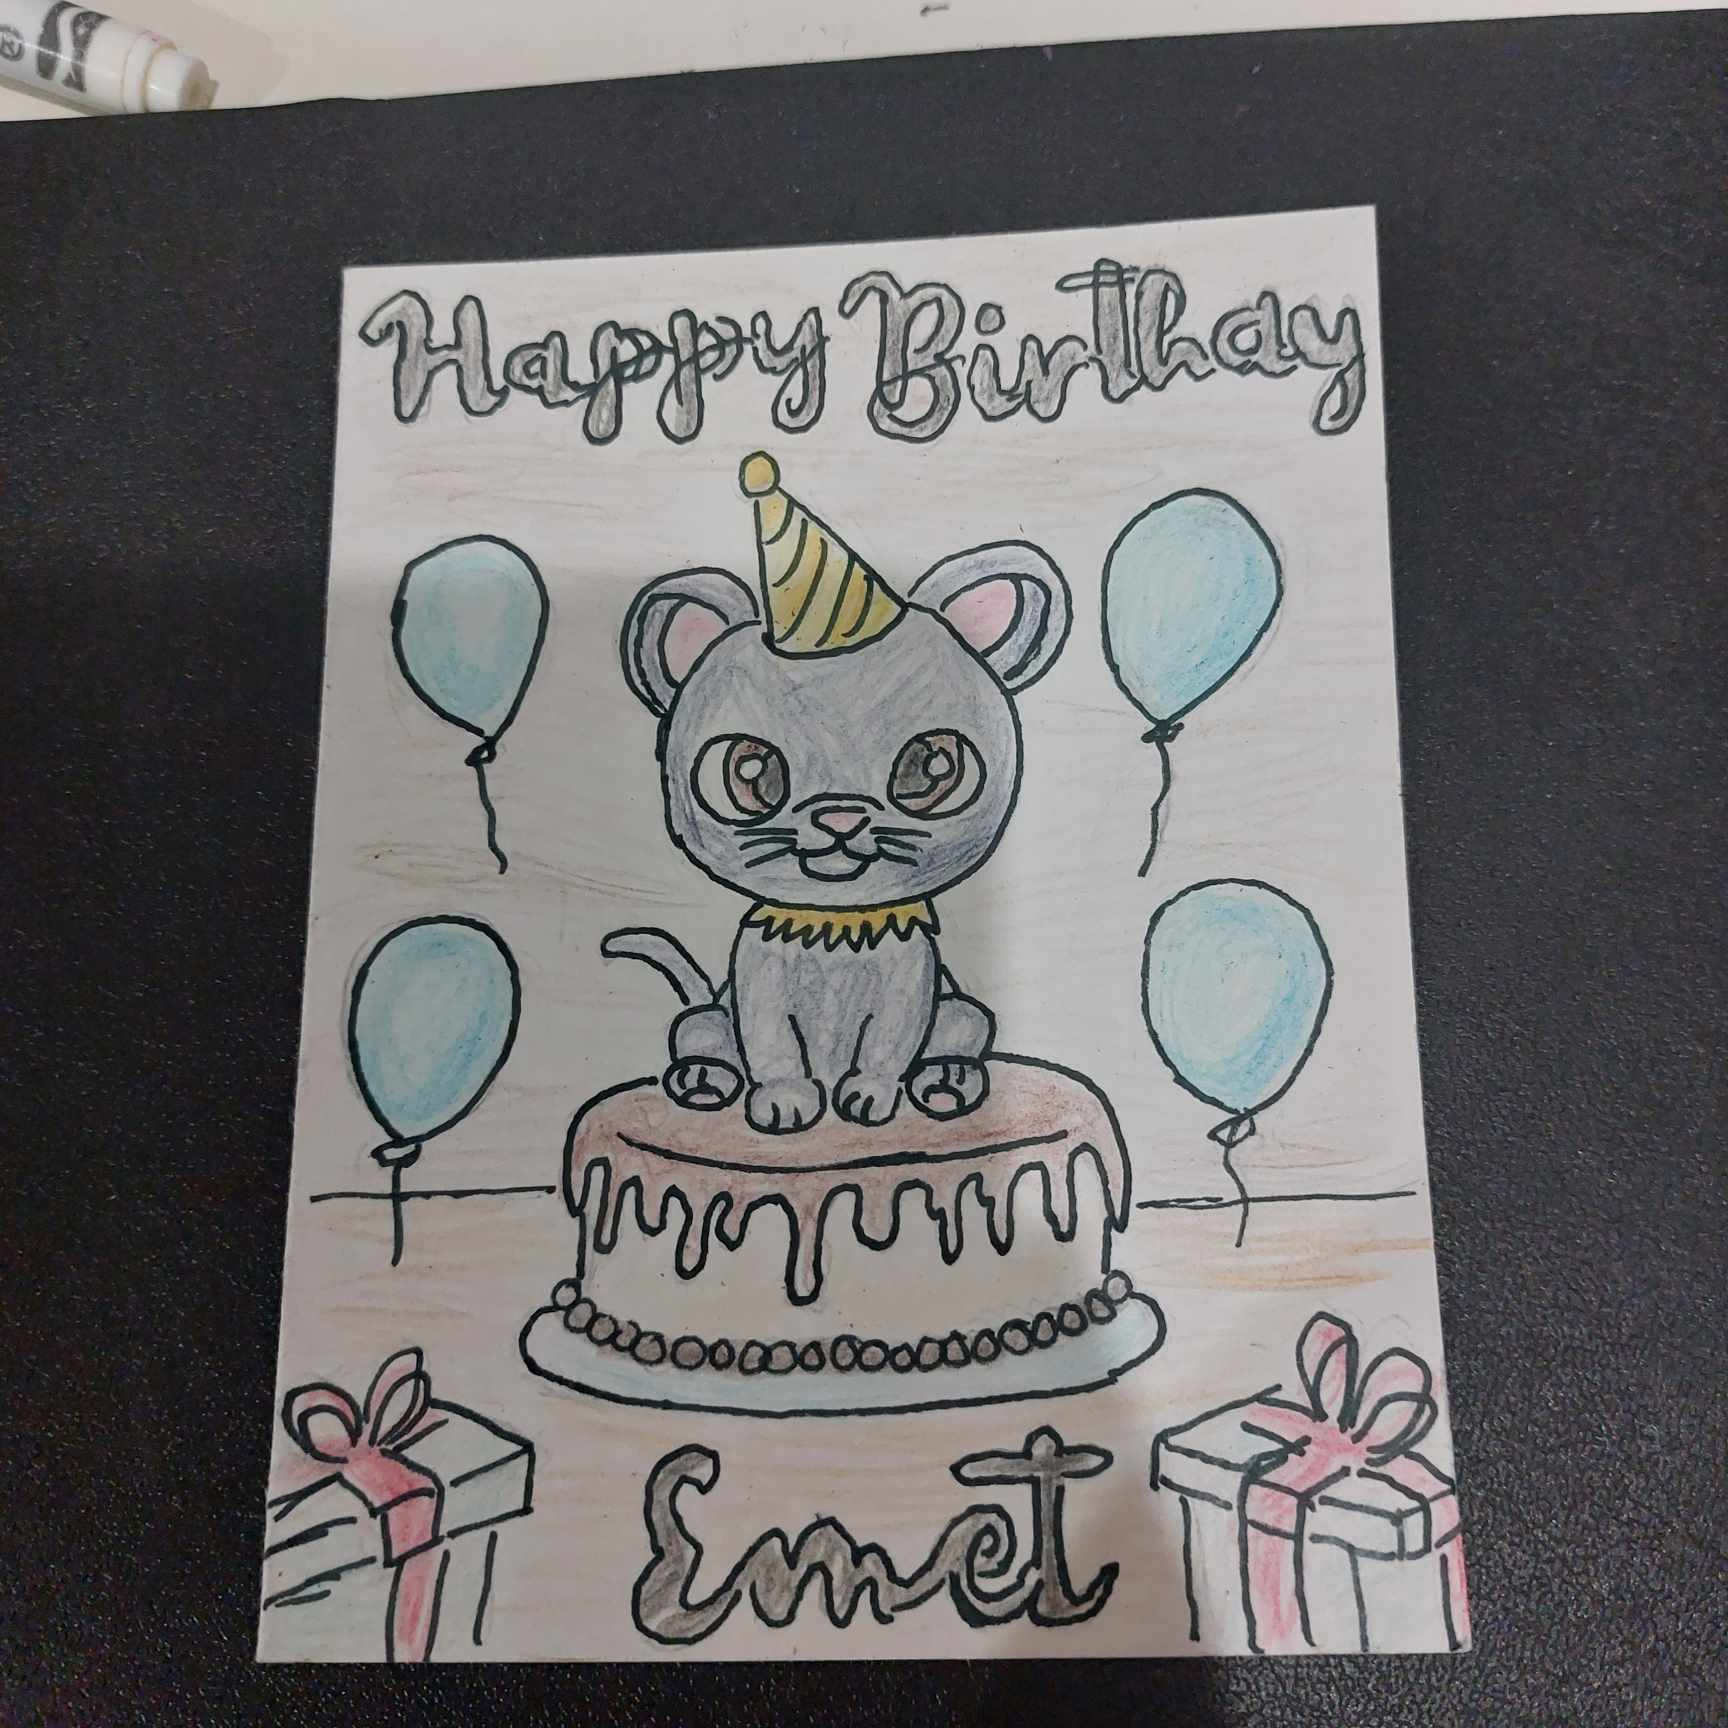 Happy Birthay
Emet